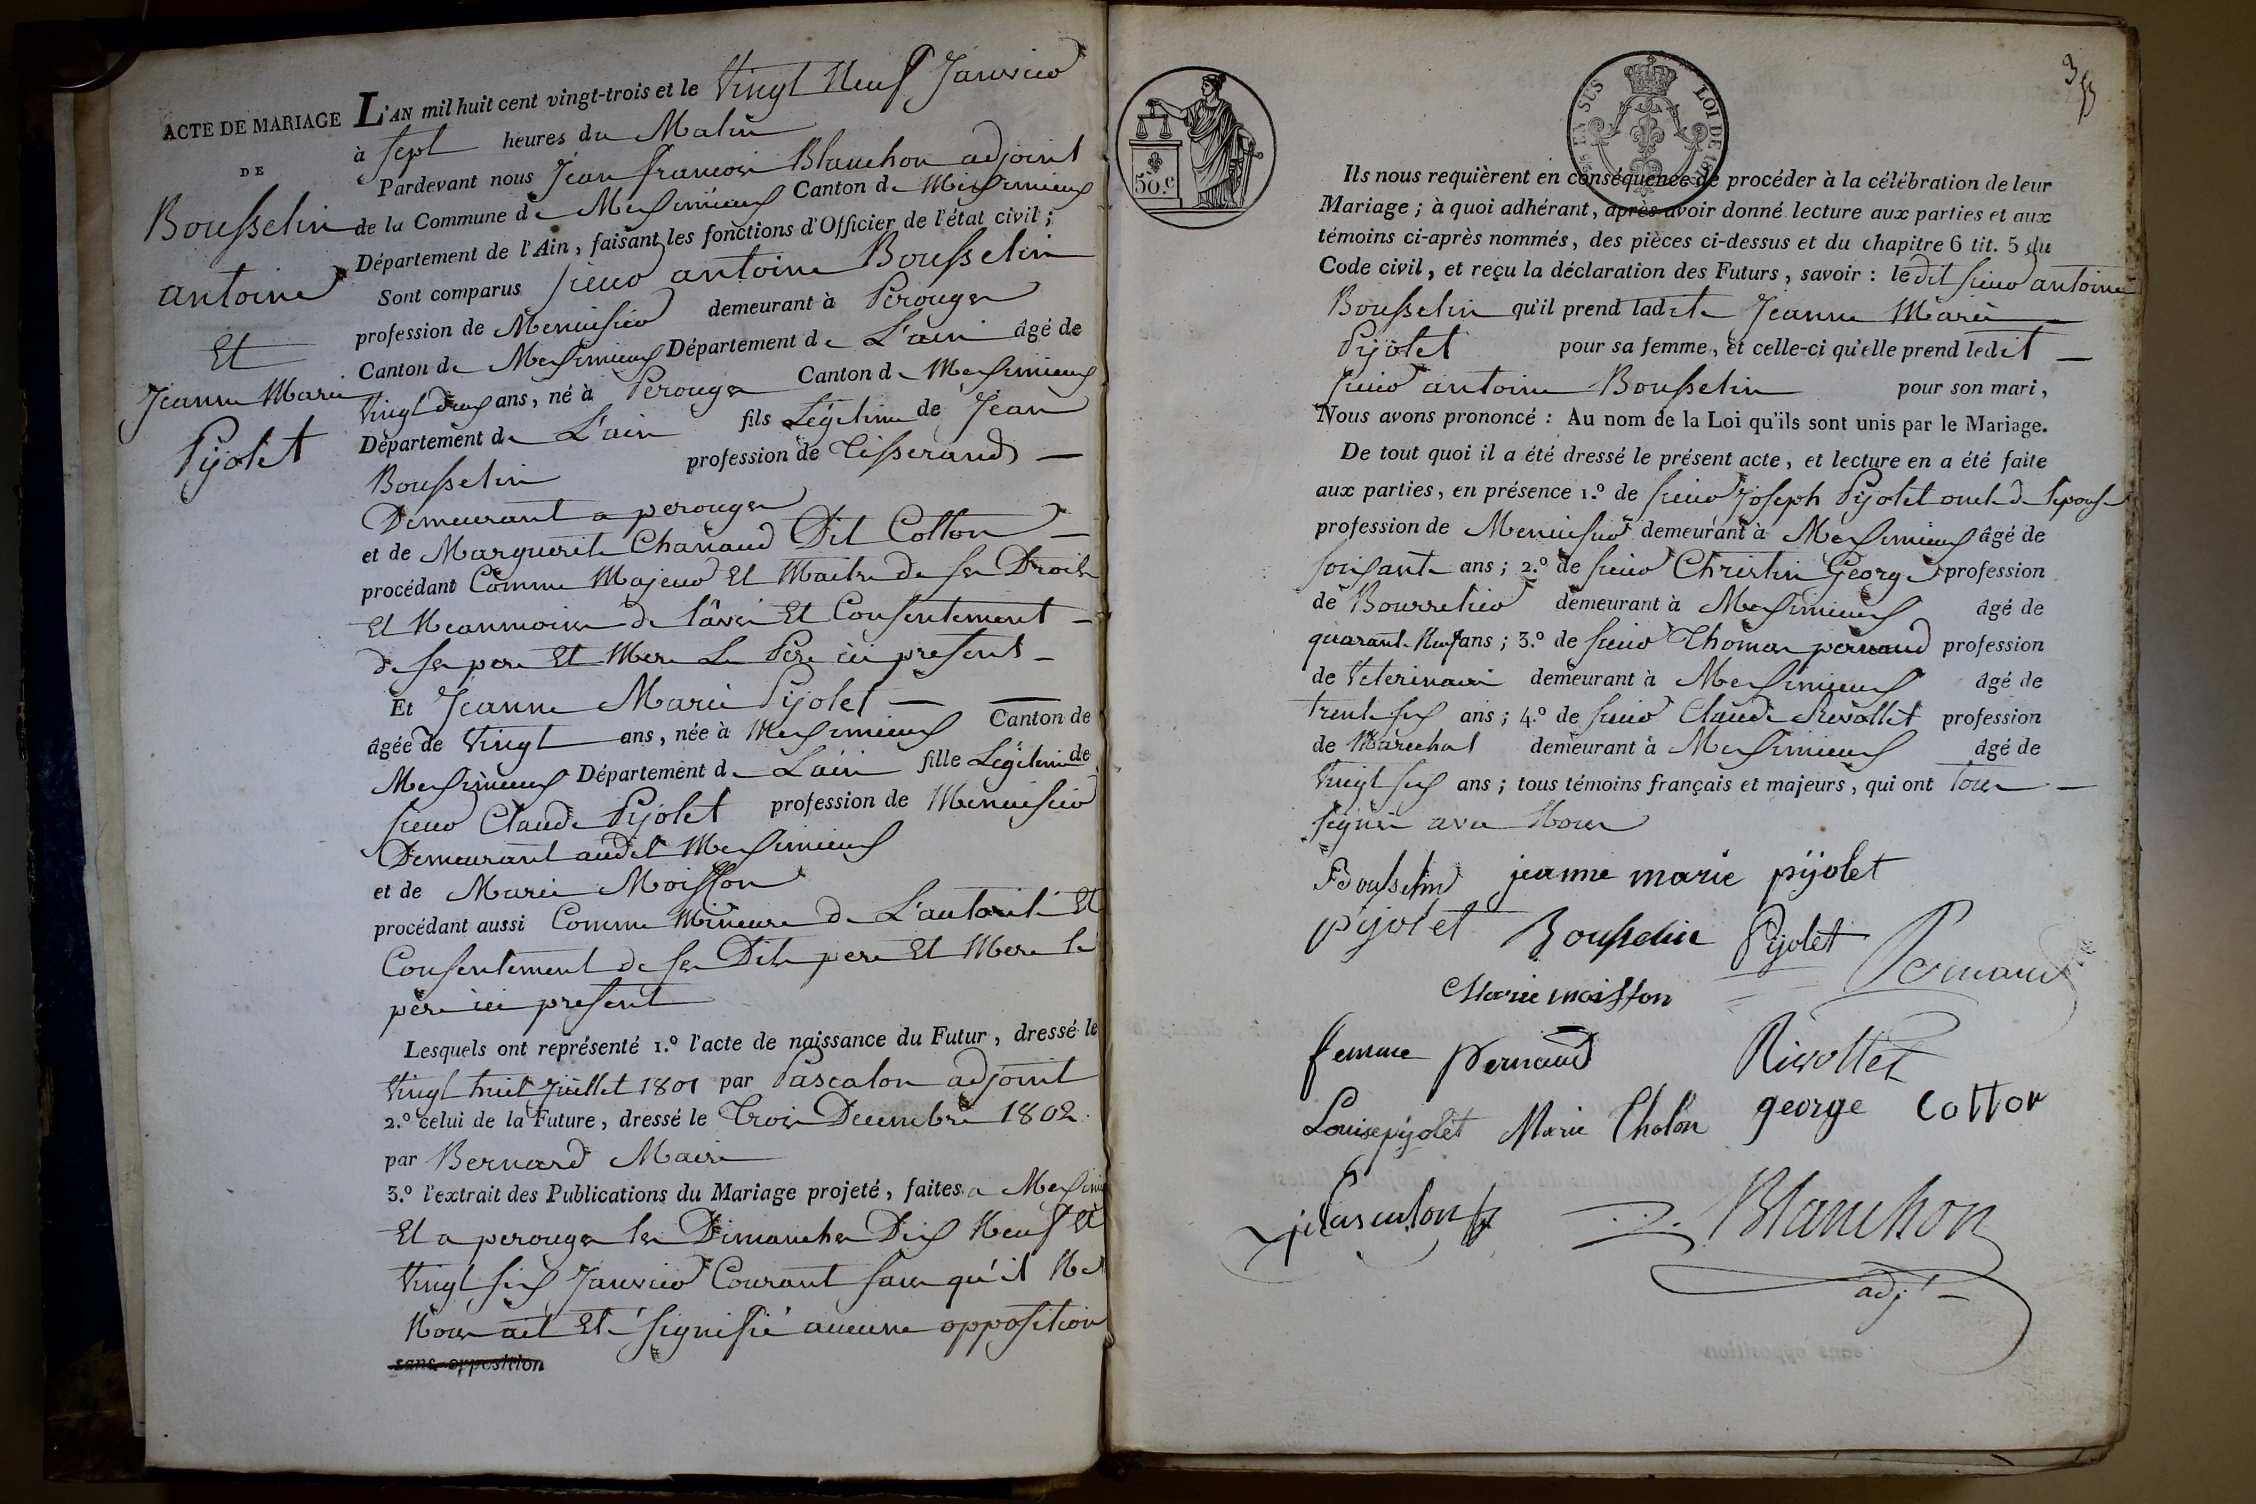 ACTE DE MARIAGE
DE
Bousselin
antoine
Et
Jeanne Marie
Pijolet
L'AN mil huit cent vingt-trois et le Vingt Neuf Janvier
à sept heures du Matin
Pardevant nous Jean francois Blanchon adjoint
de la Commune de Meximieux Canton de Meximieux
Département de l'Ain, faisant les fonctions d'Officier de l'état civil ;
Sont comparus sieur antoine Bousselin
profession de Menuisier demeurant à Perouges
Canton de Meximieux Département de L'ain âgé de
Vingt deux ans, né à Perouges Canton de Meximieux
Département de L'ain fils Légitime de Jean
Bousselin profession de Tisserand —
Demeurant a perouges
et de Marguerite Chanaud Dit Cotton —
procédant Comme Majeur Et Maitre de ses Droits
Et Neanmoins de l'avis Et Consentement —
de ses pere Et Mere Le Pere ici present —
Et Jeanne Marie Pijolet —
âgée de Vingt ans, née à Meximieux Canton de
Meximieux Département de L'ain fille Légitime de
sieur Claude Pijolet profession de Menuisier
Demeurant audit Meximieux
et de Marie Moisson
procédant aussi Comme Mineure de L'autorité Et
Consentement de ses Dits pere Et Mere le
père ici present
Lesquels ont représenté 1.º l'acte de naissance du Futur, dressé le
Vingt huit Juillet 1801 par Pascalon adjoint
2.º celui de la Future, dressé le Trois Decembre 1802.
par Bernard Maire
3.º l'extrait des Publications du Mariage projeté, faites a Meximieux
Et a perouges les Dimanches Dix Neuf Et
Vingt six Janvier Courant sans qu'il Ne
Nous ait Eté signifié aucune opposition
sans opposition
50.c
EN SUS LOI DE
Ils nous requièrent en conséquence de procéder à la célébration de leur
Mariage ; à quoi adhérant, après avoir donné lecture aux parties et aux
témoins ci-après nommés, des pièces ci-dessus et du chapitre 6 tit. 5 du
Code civil, et reçu la déclaration des Futurs, savoir : le dit sieur antoine
Bousselin qu'il prend ladite Jeanne Marie
Pijolet pour sa femme, et celle-ci qu'elle prend ledit —
sieur antoine Bousselin pour son mari,
Nous avons prononcé : Au nom de la Loi qu'ils sont unis par le Mariage.
De tout quoi il a été dressé le présent acte, et lecture en a été faite
aux parties, en présence 1.º de sieur Joseph Pijolet oncle de l'epouse
profession de Menuisier demeurant à Meximieux âgé de
soixante ans ; 2.º de sieur Christin George profession
de Bourrelier demeurant à Meximieux âgé de
quarante Neuf ans ; 3.º de sieur Thomas pernaud profession
de Veterinaire demeurant à Meximieux âgé de
trente six ans ; 4.º de sieur Claude Rivollet profession
de Marechal demeurant à Meximieux âgé de
Vingt six ans ; tous témoins français et majeurs, qui ont tous —
signés avec Nous
Bousselin jeanne marie pijolet
pijolet Bousselin Pijolet Pernaud
Marie moisson
femme Pernaud Rivollet
Louise pijolet Marie Cholon george cotton
Pascalon Blanchon
adj.t —